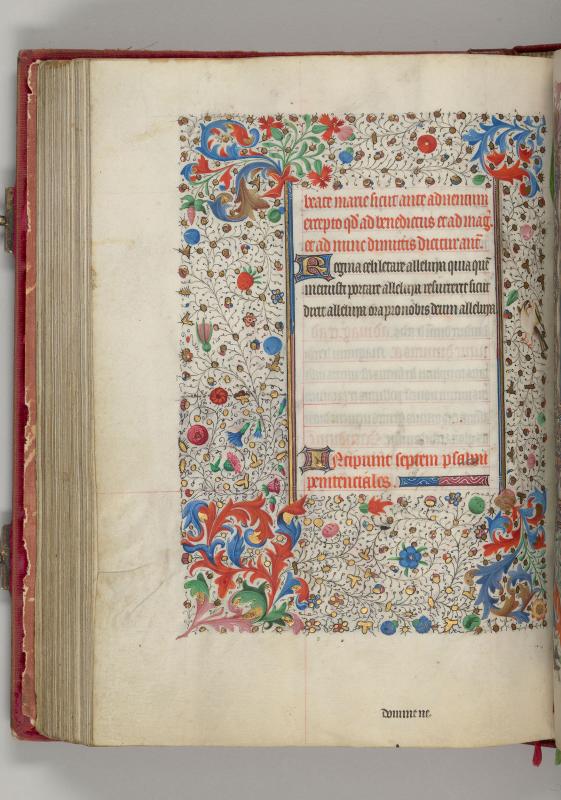 beate marie sicut ante adventum
excepto qd ad benedictus et ad mag.
et ad nunc dimittis dicitur anẽ.
Regina celi letare alleluya quia quẽ
meruisti portare alleluya resurrexit sicut
dixit alleluya ora pro nobis deum alleluya
Incipiunt septem psalmi
penitenciales.
domine ne.